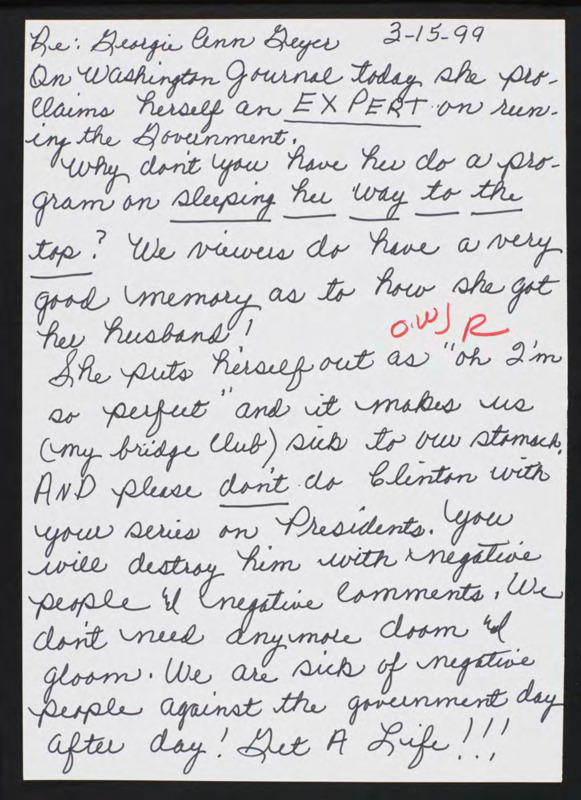 Re: Georgie Ann Geyer 3-15-99
On Washington Journal today she pro-
claims herself an EXPERT on run-
ing the Government.
Why don't you have her do a pro-
gram on sleeping her way to the
top? We viewers do have a very
good memory as to how she got
her husband!
O.WJ R
She puts herself out as "oh I'm
so perfect" and it makes us
(my bridge club) sick to our stomach.
AND please don't do Clinton with
your series on Presidents. You
will destroy him with negative
people & negative comments. We
don't need anymore doom &
gloom. We are sick of negative
people against the government day
after day! Get A Life!!!